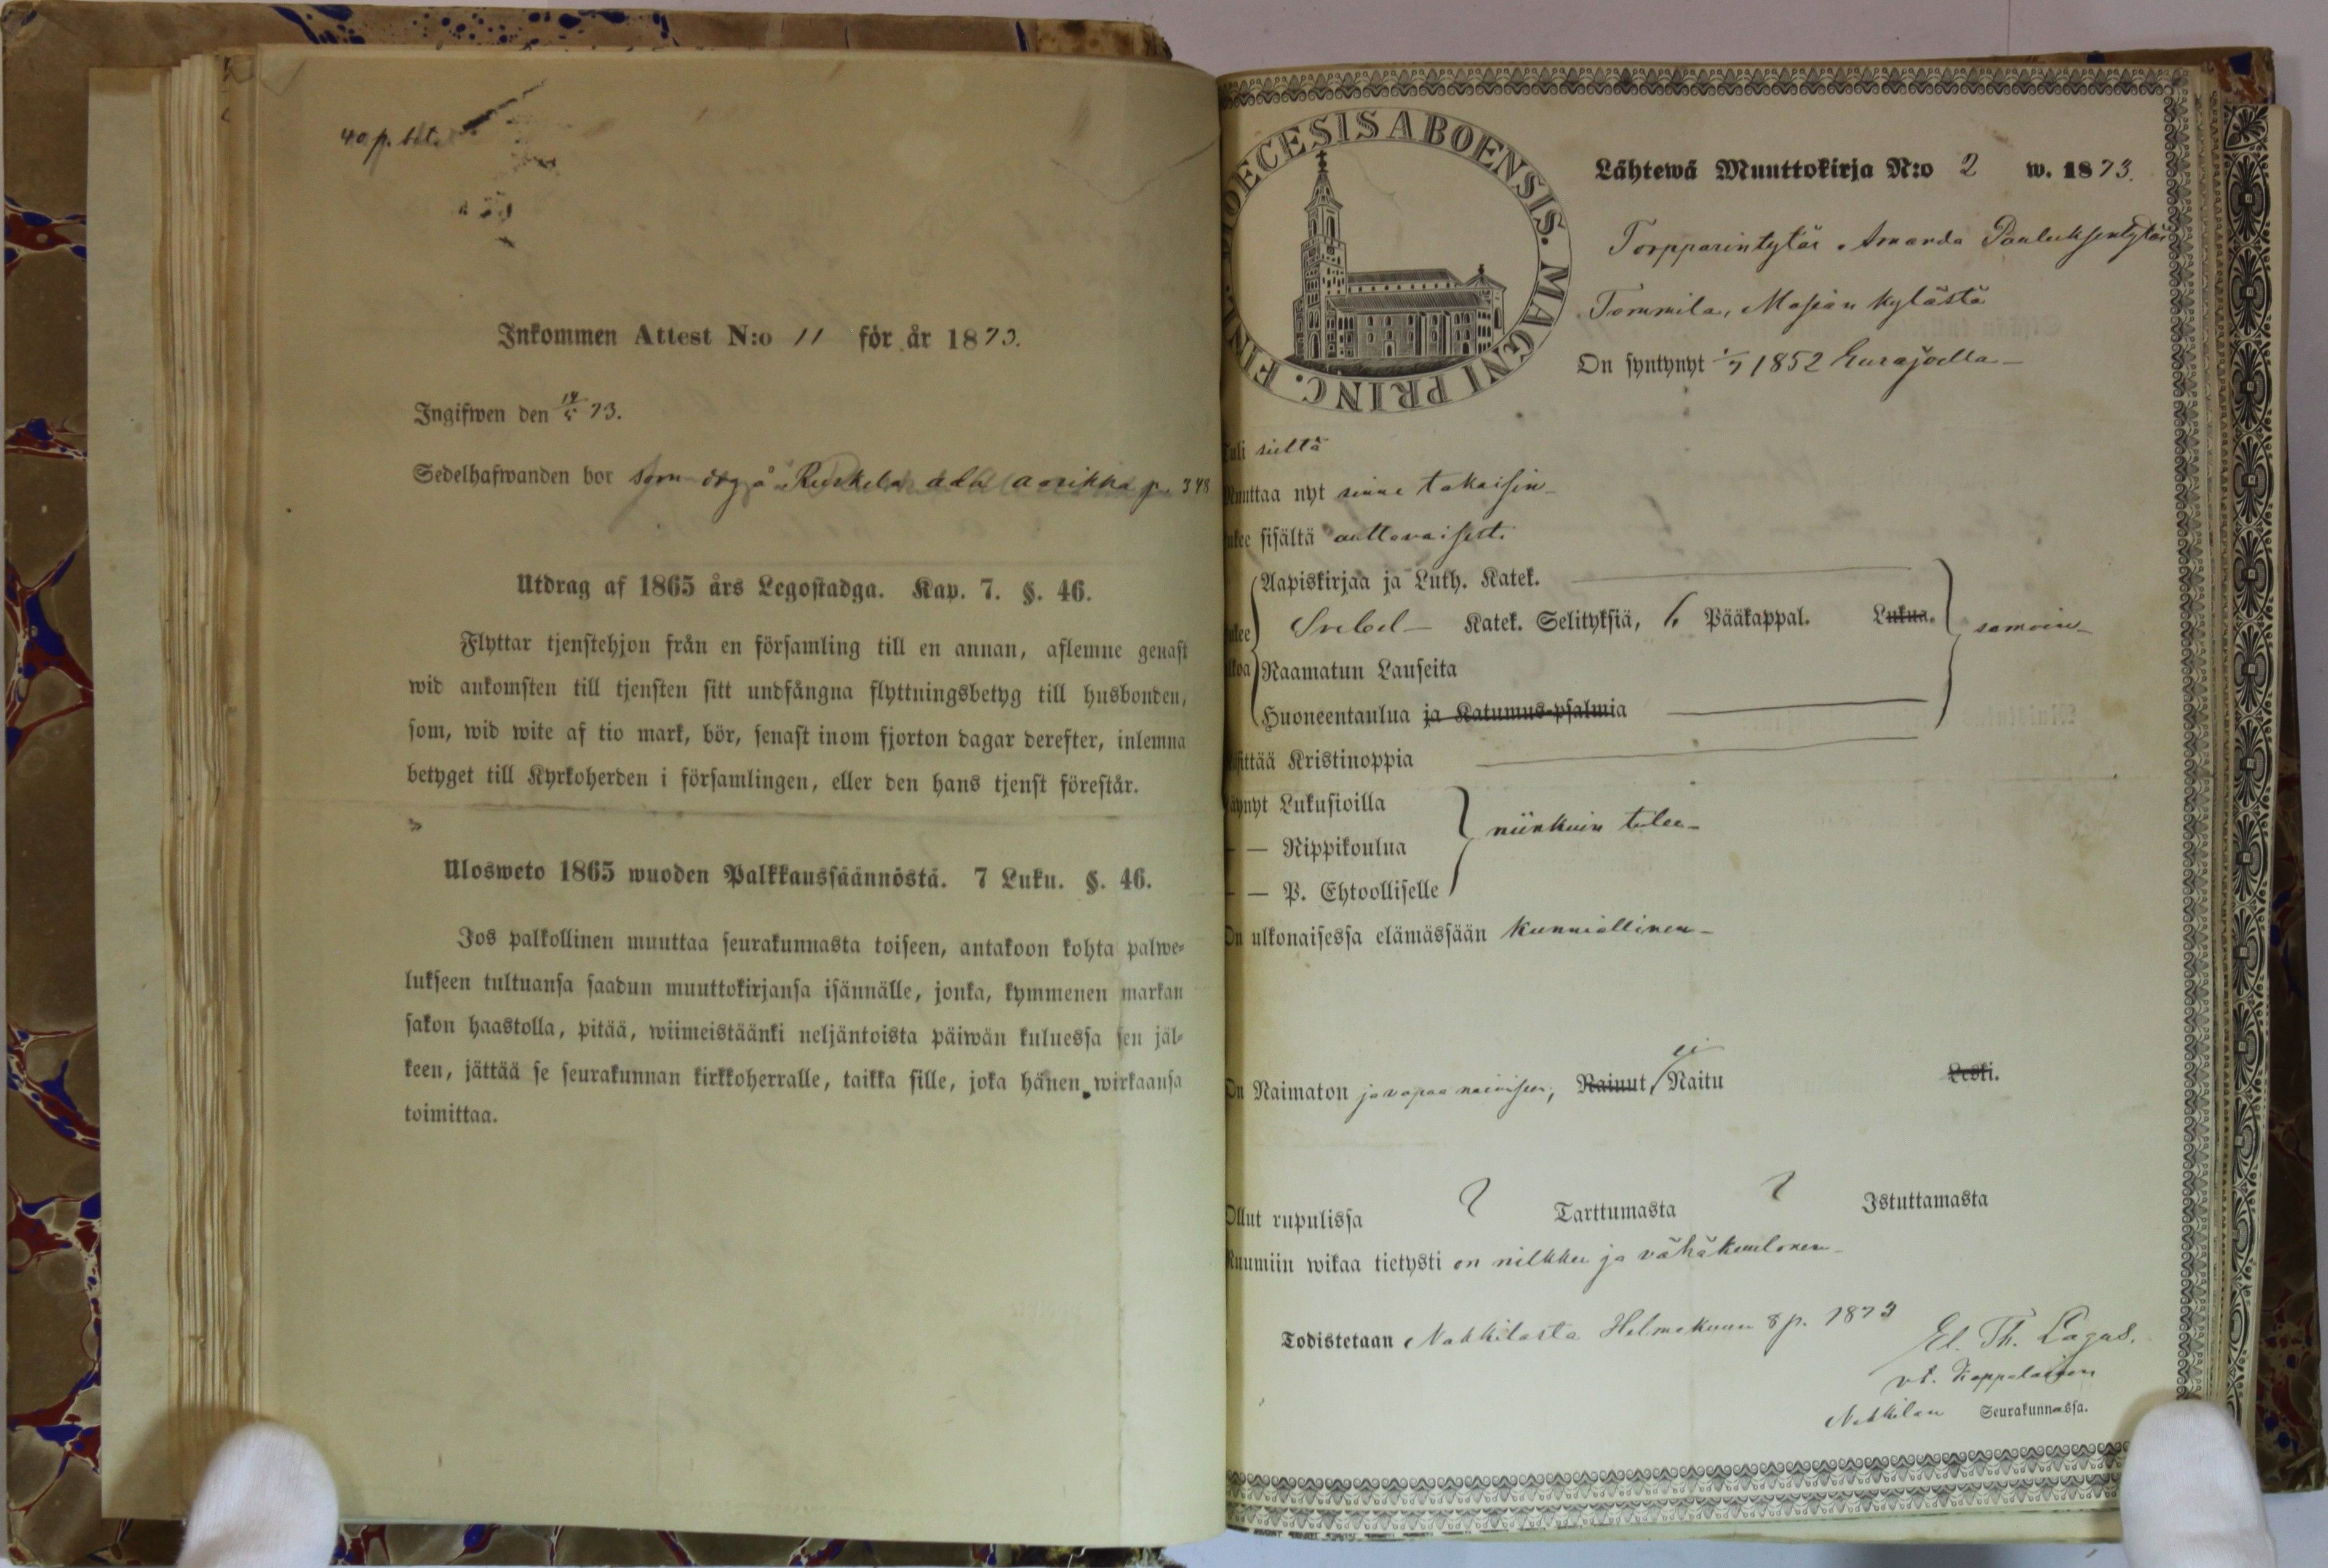 40 p. bet.
Inkommen Attest N:o 11 för år 1873.
Ingifwen den 14/5 73.
Sedelhafwanden bor som på Ruskela p. 348
Utdrag af 1865 års Legostadga. Kap. 7. §. 46.
Flyttar tjenstehjon från en församling till en annan, aflemne genast
wid ankomsten till tjensten sitt undfångna flyttningsbetyg till husbonden,
som, wid wite af tio mark, bör, senast inom fjorton dagar derefter, inlemna
betyget till Kyrkoherden i församlingen, eller den hans tjenst förestår.
Ulosweto 1865 wuoden Palkkaussäännöstä. 7 Luku. §. 46.
Jos palkollinen muuttaa seurakunnasta toiseen, antakoon kohta palwe-
lukseen tultuansa saadun muuttokirjansa isännälle, jonka, kymmenen markan
sakon haastolla, pitää, wiimeistäänki neljäntoista päiwän kuluessa sen jäl-
keen, jättää se seurakunnan kirkkoherralle, taikka sille, joka hänen wirkaansa
toimittaa.
DIOECESIS ABOENSIS. MAGNI PRINC. FINL.
Lähtewä Muuttokirja N:o 2 w. 1873.
Torpparintytär Amanda Pauluksentytär
Tommila, Masian kylästä
On syntynyt 1/7 1852 Eurajoella
Tuli sieltä
Muuttaa nyt sinne takaisin
Lukee sisältä auttavaisesti
Aapiskirjaa ja Luth. Katek.
Svebel Katek. Selityksiä, 6 Pääkappal. Lukua. samoin
Raamatun Lauseita
Huoneentaulua ja Katumus-psalmia
Käsittää Kristinoppia
Käynyt Lukusioilla
— — Rippikoulua niinkuin tulee
— — P. Ehtoolliselle
On ulkonaisessa elämässään kunniallinen
ei
On Naimaton ja vapaa naimiseen, Nainut, Naitu Leski.
Ollut rupulissa ? Tarttumasta ? Istuttamasta
Ruumiin wikaa tietysti on nilkku ja vähäkuuloinen
Todistetaan Nakkilasta Helmekuun 8 p. 1873
El. Th. Lagus.
vt. Kappalainen
Nakkilan Seurakunnassa.